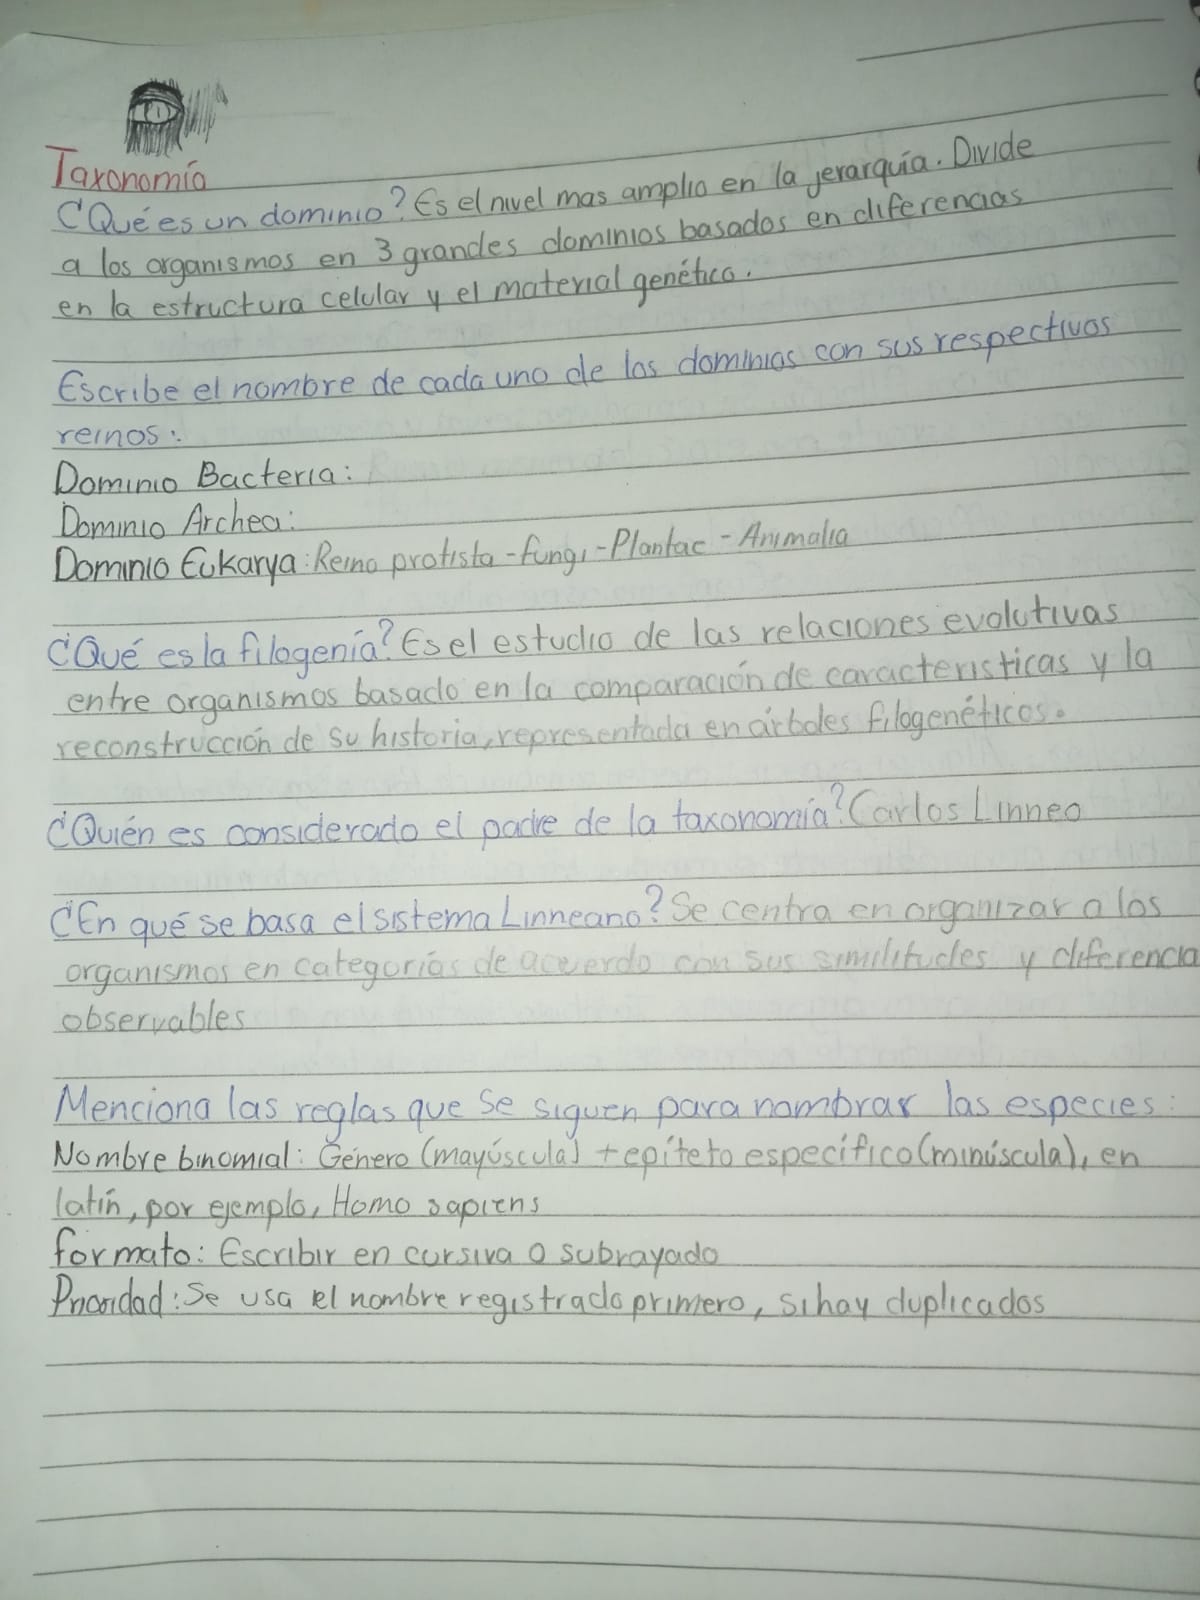 Taxonomía
¿Qué es un dominio? Es el nivel mas amplio en la jerarquía. Divide
a los organismos en 3 grandes dominios basados en diferencias
en la estructura celular y el material genético.
Escribe el nombre de cada uno de los dominios con sus respectivos
reinos:
Dominio Bacteria:
Dominio Archea:
Dominio Eukarya: Reino protista - fungi - Plantae - Animalia
¿Qué es la filogenía? Es el estudio de las relaciones evolutivas
entre organismos basado en la comparación de caracteristicas y la
reconstrucción de su historia, representada en árboles filogenéticos.
¿Quién es considerado el padre de la taxonomía? Carlos Linneo
¿En qué se basa el sistema Linneano? Se centra en organizar a los
organismos en categorías de acuerdo con sus similitudes y diferencia
observables
Menciona las reglas que se siguen para nombrar las especies:
Nombre binomial: Género (mayúscula) + epíteto específico (minúscula), en
latín, por ejemplo, Homo sapiens
formato: Escribir en cursiva o subrayado
Prioridad: Se usa el nombre registrado primero, si hay duplicados